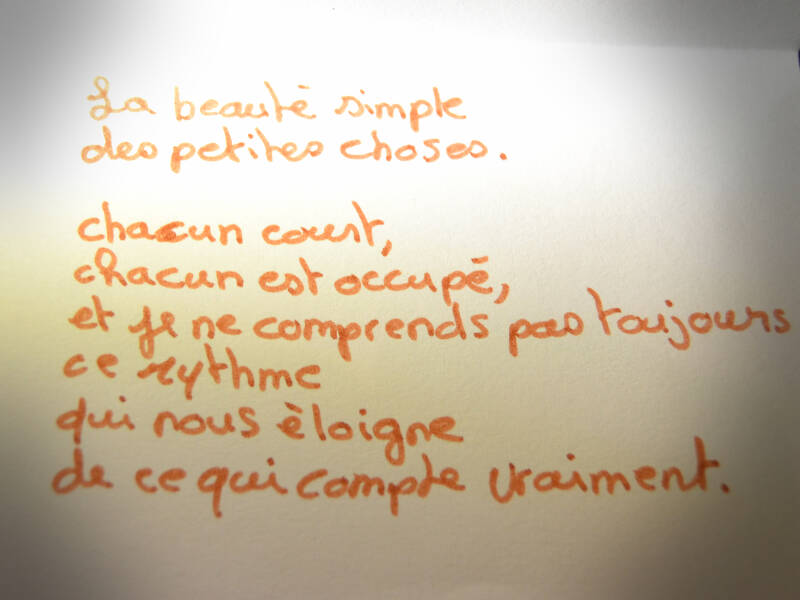 La beauté simple
des petites choses.
chacun court,
chacun est occupé,
et je ne comprends pas toujours
ce rythme
qui nous éloigne
de ce qui compte vraiment.